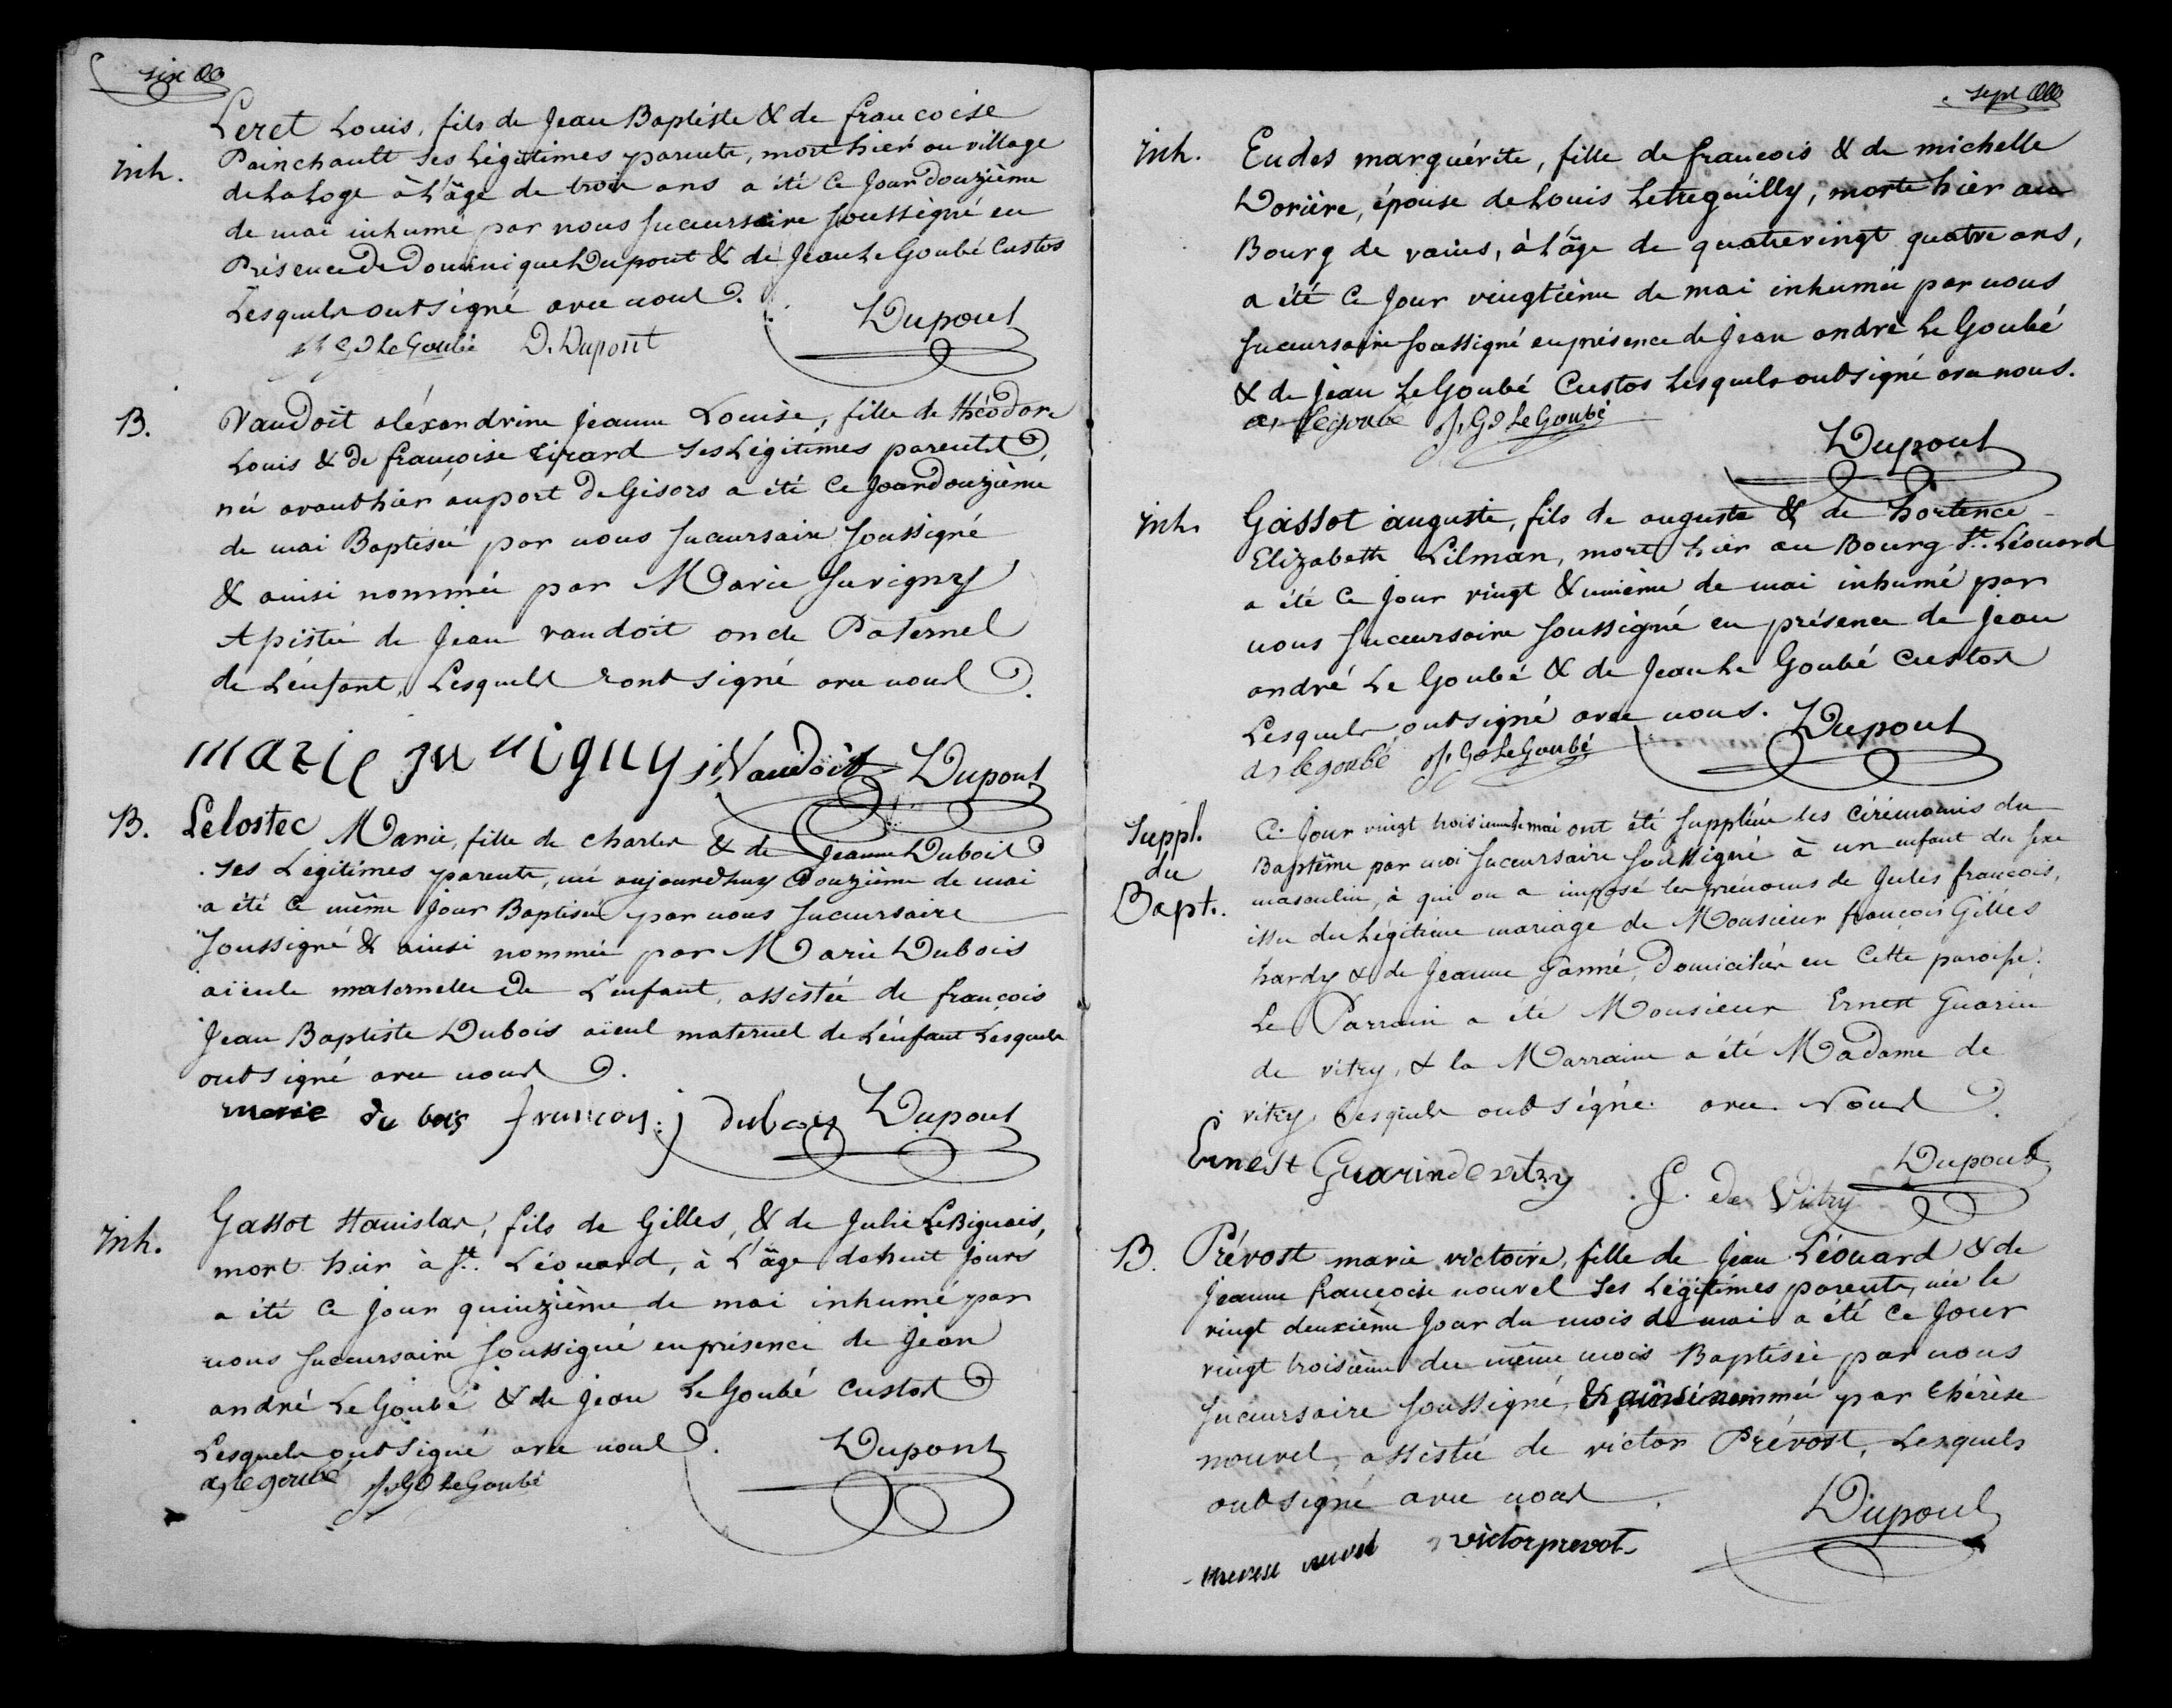 six
Leret Louis, fils de Jean Baptiste & de francoise
Inh.
Painchault ses Légitimes parents, mort hier au village
de la Loge à L'âge de trois ans a été Ce Jour douzième
de mai inhumé par nous succursaire soussigné en
Présence de Dominique Dupont & de Jean Le Goubé Custos
Lesquels ont signé avec nous.
Le Goubé D. Dupont Dupont
B.
Vaudoit aléxandrine Jeanne Louise, fille de théodore
Louis & de françoise Girard ses Légitimes parents,
née avant hier au port de Gisors a été Ce Jour douzième
de mai Baptisée par nous succursaire soussigné
& ainsi nommée par Marie Juvigny
Assistée de Jean vaudoit oncle Paternel
de L'enfant, Lesquels ont signé avec nous.
marie juvigny j, Vaudoit Dupont
B.
Lelostec Marie, fille de charles & de Jeanne Dubois
ses Légitimes parents, née aujourdhuy douzième de mai
a été Ce même Jour Baptisée par nous succursaire
soussigné & ainsi nommée par Marie Dubois
aïeule maternelle de L'enfant, assistée de françois
Jean Baptiste Dubois aïeul maternel de L'enfant Lesquels
ont signé avec nous.
marie du bois francois j dubois Dupont
Inh.
Gassot stanislas, fils de Gilles, & de Julie LeBignais,
mort hier à St. Léonard, à L'âge de huit Jours
a été Ce Jour quinzième de mai inhumé par
nous succursaire soussigné en présence de Jean
andré Le Goubé & de Jean Le Goubé custos
Lesquels ont signé avec nous.
legoubé Le Goubé Dupont
sept
Inh.
Eudes marguérite, fille de francois & de michelle
Dorière, épouse de Louis Letreguilly, morte hier au
Bourg de vains, à L'âge de quatrevingt quatre ans,
a été Ce Jour vingtième de mai inhumée par nous
succursaire soussigné en présence de Jean andré Le Goubé
& de Jean Le Goubé Custos Lesquels ont signé avec nous.
legoubé Le Goubé
Dupont
Inh.
Gassot auguste, fils de auguste & de hortence
Elizabeth Lilman, mort hier au Bourg St. Léonard
a été Ce Jour vingt & unième de mai inhumé par
nous succursaire soussigné en présence de Jean
andré Le Goubé & de Jean Le Goubé Custos
Lesquels ont signé avec nous.
legoubé Le Goubé Dupont
Suppl.
du
Bapt.
Ce Jour vingt troisième de mai ont été supplées les cérémonies du
Baptême par moi succursaire soussigné à un enfant du sexe
masculin, à qui on a imposé les prénoms de Jules francois,
issu du Légitime mariage de Monsieur françois Gilles
hardy & de Jeanne Ganné, Domiciliés en Cette paroisse.
Le Parrain a été Monsieur Ernest Guarin
de vitry, & la Marraine a été Madame de
vitry Lesquels ont signé avec Nous.
Ernest Guarin de vitry de Vitry Dupont
B.
Prévost marie victoire, fille de Jean Léonard & de
Jeanne françoise nouvel ses Légitimes parents, née le
vingt deuxième Jour du mois de mai a été Ce Jour
vingt troisième du même mois Baptisée par nous
succursaire soussigné, & ainsi nommée par thérèse
nouvel, assistée de victor Prévost, Lesquels
ont signé avec nous.
therese nouvel victor prevot Dupont